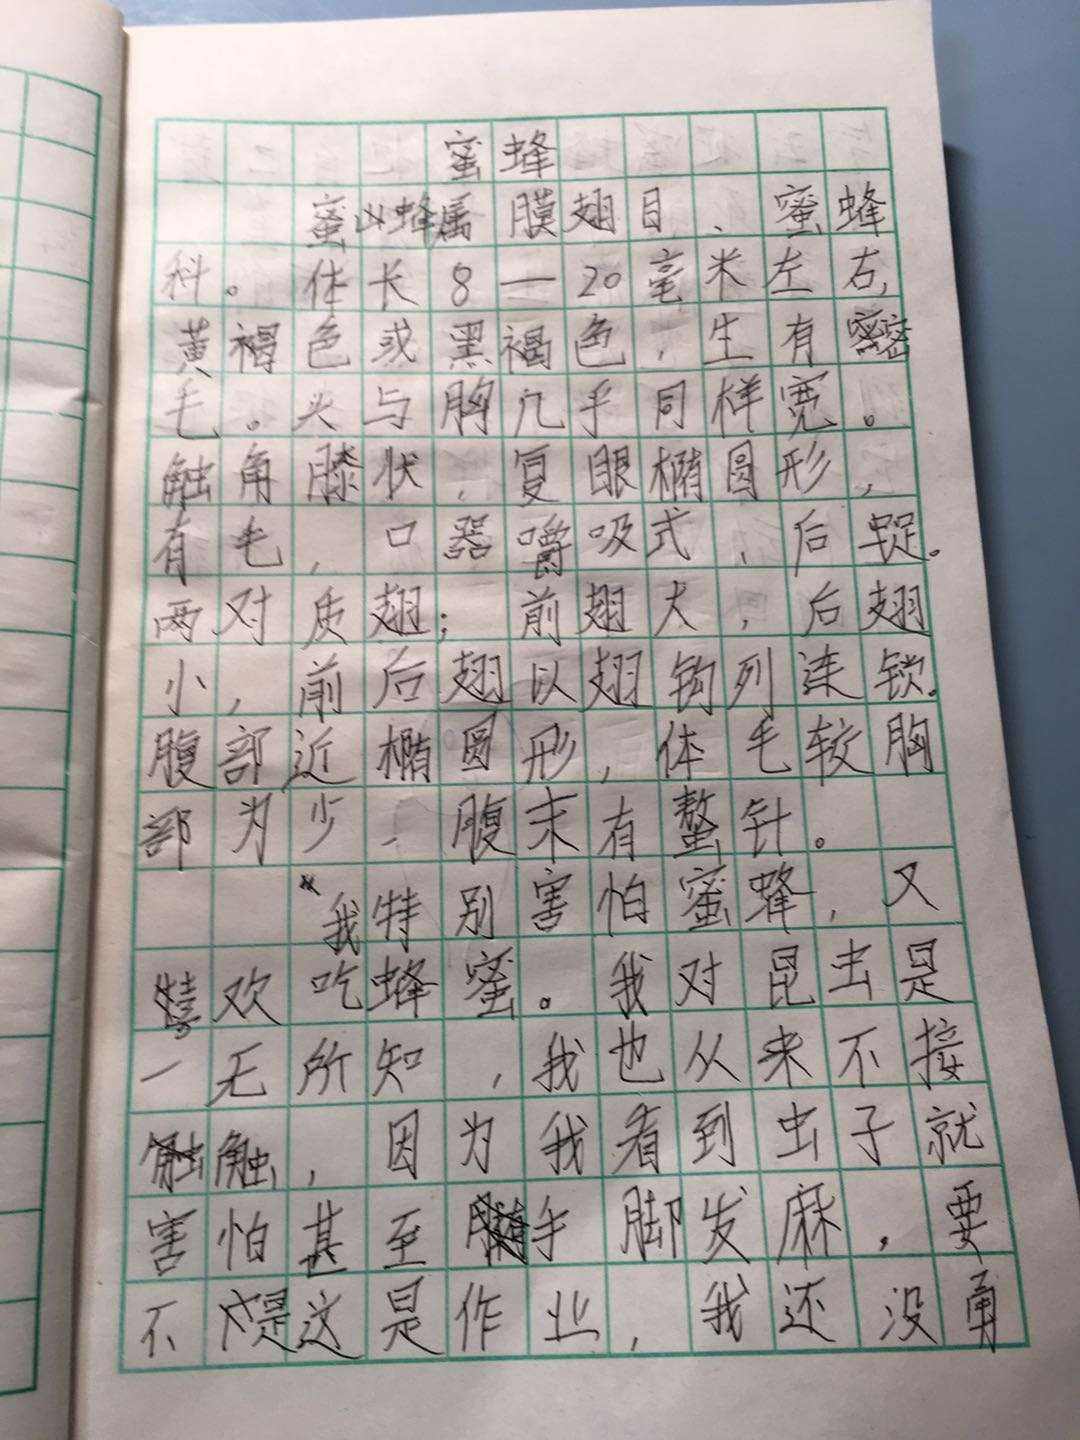 蜜蜂
蜜蜂属膜翅目、蜜蜂
科。体长8—20毫米左右,
黄褐色或黑褐色,生有密
毛。头与胸几乎同样宽。
触角膝状,复眼椭圆形,
有毛,口器嚼吸式,后足。
两对质翅;前翅大,后翅
小,前后翅以翅钩列连锁。
腹部近椭圆形,体毛较胸
部为少,腹末有螫针。
我特别害怕蜜蜂,又
喜欢吃蜂蜜。我对昆虫是
一无所知,我也从来不接
触,因为我看到虫子就
害怕甚至手脚发麻,要
不是这是作业,我还没勇